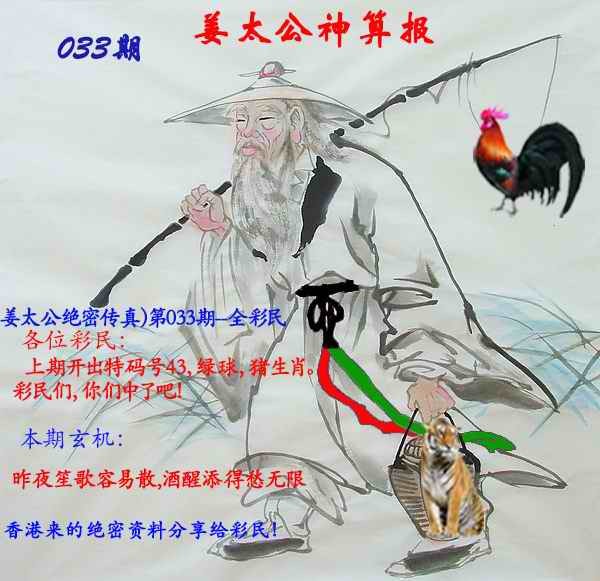 033期
姜太公神算报
姜太公绝密传真)第033期--全彩民
各位彩民:
上期开出特码号43,绿球,猪生肖。
彩民们,你们中了吧!
本期玄机:
昨夜笙歌容易散,酒醒添得愁无限
香港来的绝密资料分享给彩民!